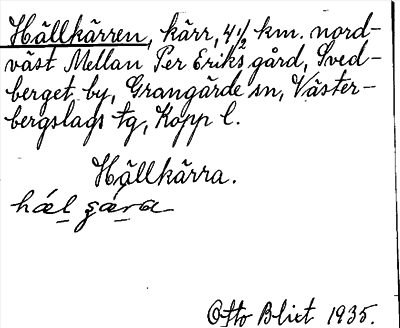 Hällkärren, kärr, 4½ km. nord-
väst Mellan Per Eriks gård, Sved-
berget by, Grangärde sn, Väster-
bergslags tg, Kopp l.
Hällkärra.
Otto Blixt 1935.